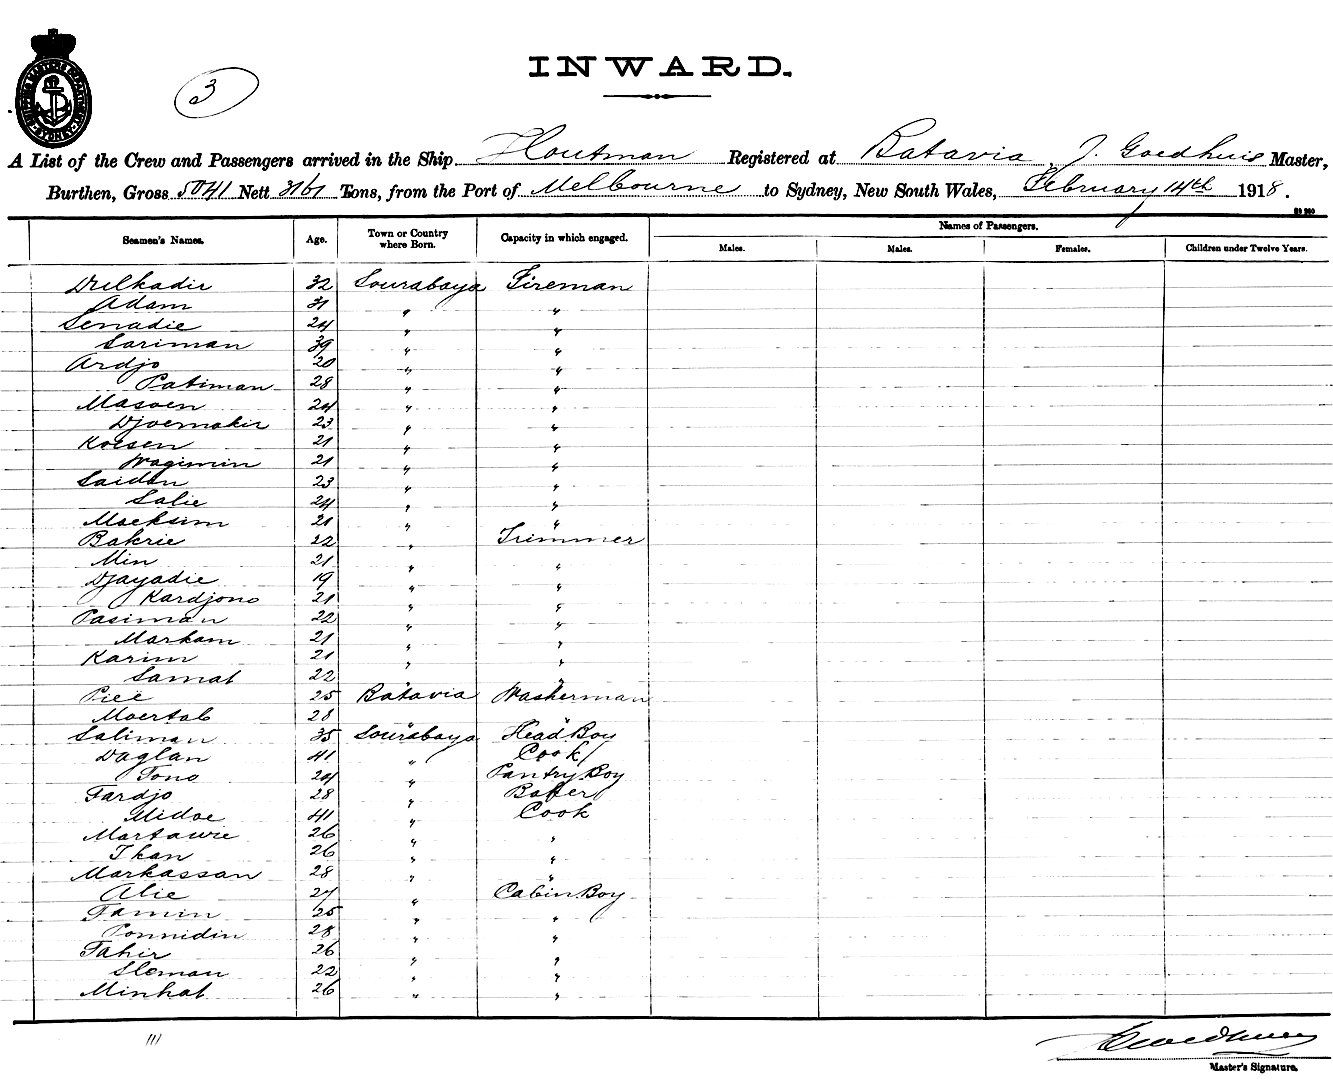 SHIPPING MASTERS DEPARTMENT SYDNEY
3
INWARD.
A List of the Crew and Passengers arrived in the Ship Houtman Registered at Batavia, J. Goedhuis Master,
Burthen, Gross 5041 Nett 3161 Tons, from the Port of Melbourne to Sydney, New South Wales, February 14th 1918.
Names of Passengers.
Seamen's Names. Age. Town or Country where Born. Capacity in which engaged. Males. Males. Females. Children under Twelve Years.
Drilkadir 32 Sourabaya Fireman
Adam 31 " "
Senadie 24 " "
Sariman 39 " "
Ardjo 20 " "
Patiman 28 " "
Masoen 24 " "
Djoemakir 23 " "
Koesen 21 " "
Wagimin 21 " "
Saidan 23 " "
Salie 24 " "
Moeksim 21 " "
Bakrie 22 " Trimmer
Min 21 " "
Djayadie 19 " "
Kardjono 21 " "
Pasiman 22 " "
Markam 21 " "
Karim 21 " "
Samat 22 " "
Piee 25 Batavia Washerman
Moertab 28 " "
Saliman 35 Sourabaya Head Boy
Daglan 41 " Cook
Tono 24 " Pantry Boy
Fardjo 28 " Baker
Midoe 41 " Cook
Martawie 26 " "
Ikan 26 " "
Markassan 28 " "
Alie 27 " Cabin Boy
Tamin 25 " "
Ponnidin 28 " "
Tahir 26 " "
Sleman 22 " "
Minhat 26 " "
Master's Signature.